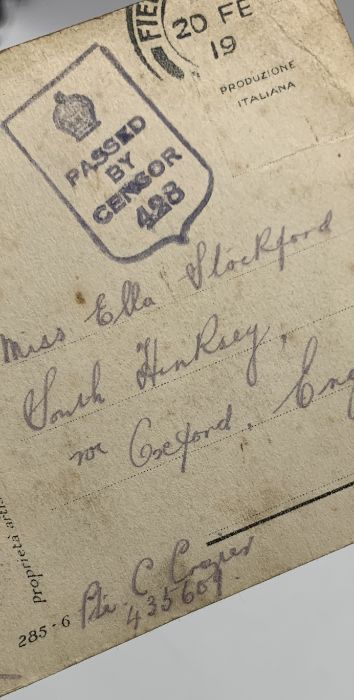 FIE
20 FE
19
PRODUZIONE
ITALIANA
PASSED
BY
CENSOR
428
Miss Ella Stockford
South Hinksey,
nr Oxford, Eng
Proprietà artis
Pte. C
435609.
285-6